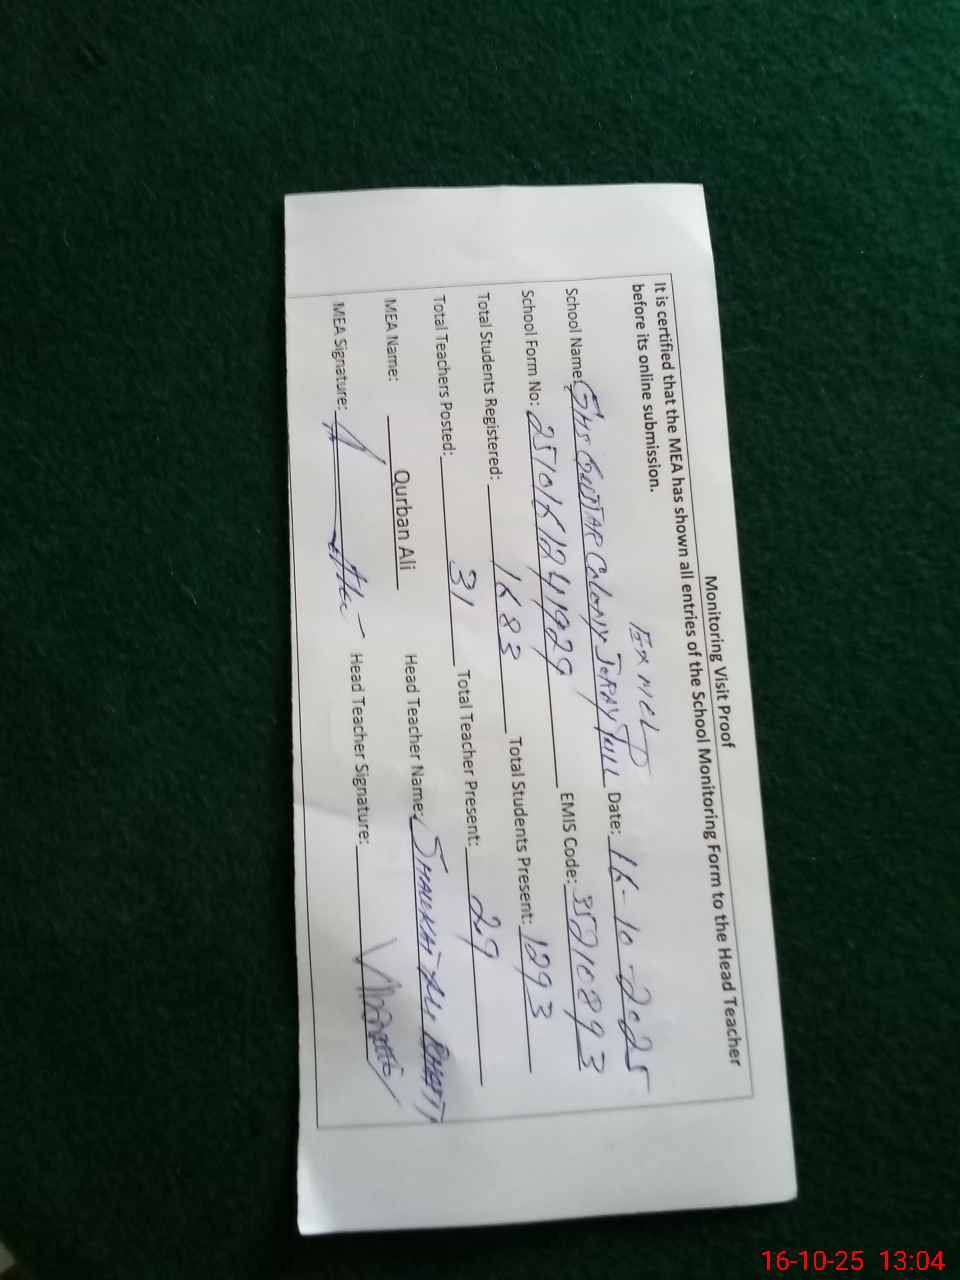 Monitoring Visit Proof
It is certified that the MEA has shown all entries of the School Monitoring Form to the Head Teacher
before its online submission.
School Name: GHS Colony Date: 16-10-2025
School Form No: EMIS Code: 35210893
Total Students Registered: 1683 Total Students Present: 1293
Total Teachers Posted: 31 Total Teacher Present: 29
MEA Name: Qurban Ali Head Teacher Name: SHAUKAT ALI BHATTI
MEA Signature: Head Teacher Signature:
16-10-25 13:04